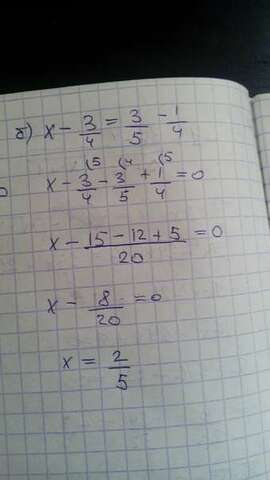 б) x - 3/4 = 3/5 - 1/4
x - 3/4 (5 - 3/5 (4 + 1/4 (5 = 0
x - (15 - 12 + 5)/20 = 0
x - 8/20 = 0
x = 2/5